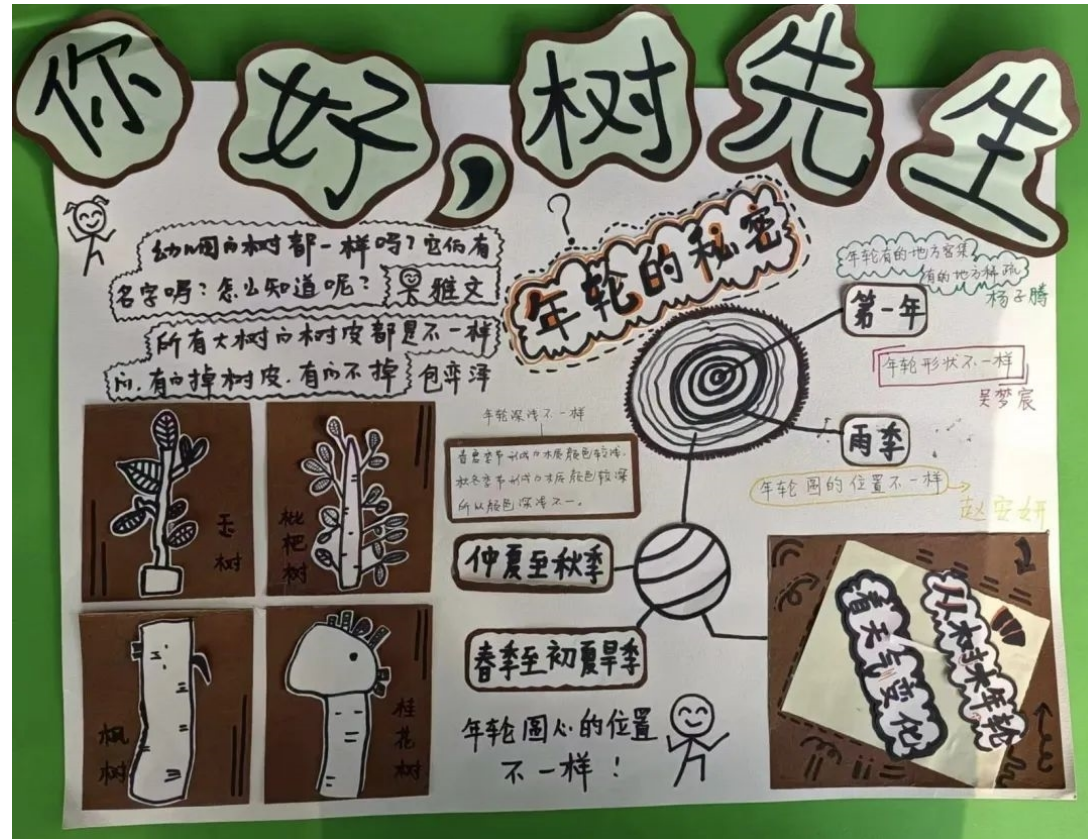 你好,树先生
幼儿园的树都一样吗?它们有
名字吗?怎么知道呢? 雅文
所有大树的树皮都是不一样
的.有的掉树皮.有的不掉 包弈泽
?
年轮的秘密
年轮有的地方密集
有的地方稀疏
杨子腾
第一年
年轮形状不一样
吴梦宸
雨季
年轮圆的位置不一样
赵安妍
年轮深浅不一样
春夏季节形成的木质颜色较浅.
秋冬季节形成的木质颜色较深
所以颜色深浅不一。
玉树
枇杷树
枫树
桂花树
仲夏至秋季
春季至初夏旱季
年轮圆心的位置
不一样!
从树木年轮
看天气变化